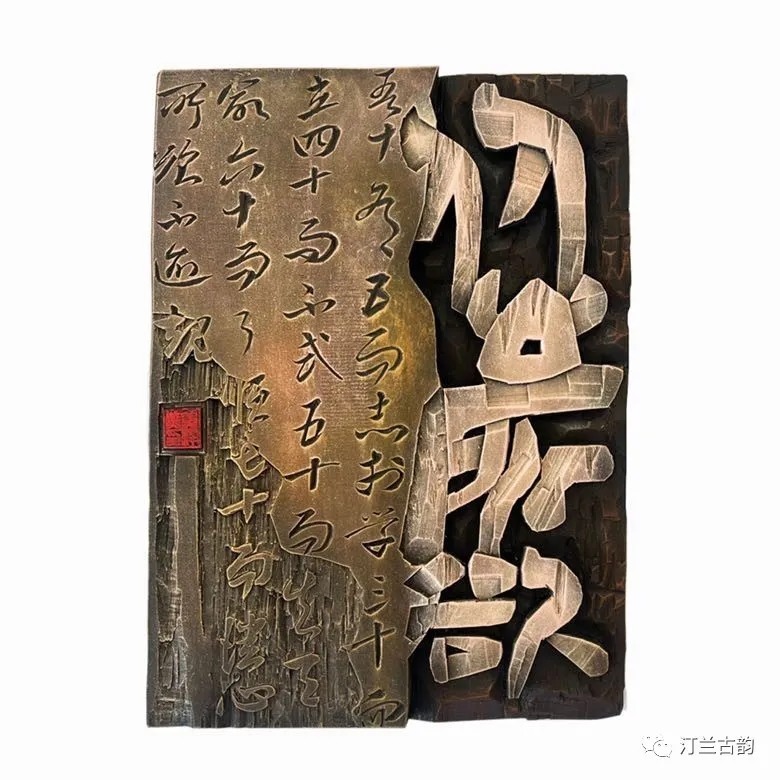 从心所欲
吾十有五而志於学三十而
立四十而不惑五十而知天
命六十而耳順七十而從心
所欲不逾矩
汀兰古韵